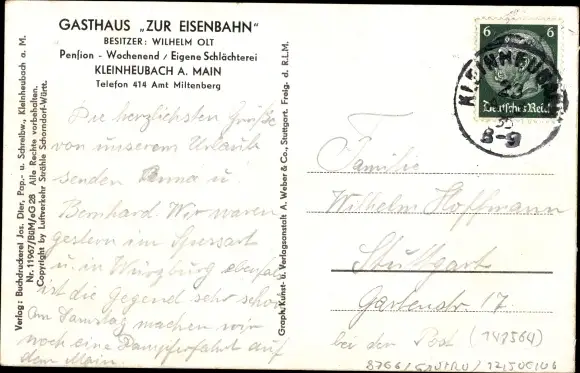 GASTHAUS „ZUR EISENBAHN"
BESITZER: WILHELM OLT
Pension - Wochenend / Eigene Schlächterei
KLEINHEUBACH A. MAIN
Telefon 414 Amt Miltenberg
Die herzlichsten Grüße
von unserem Urlaub
senden Anna u.
Bernhard. Wir waren
gestern im Spessart
u. in Würzburg ebenfalls
ist die Gegend sehr schön
Am Samstag machen wir
noch eine Dampferfahrt auf
dem Main.
Verlag: Buchdruckerei Jos. Dier, Pap.- u. Schreibw., Kleinheubach a. M.
Nr. 11967/BüM/eG 28 Alle Rechte vorbehalten.
Copyright by Luftverkehr Strähle Schorndorf-Württ.
Graph. Kunst- u. Verlagsanstalt A. Weber & Co., Stuttgart. Freig. d. R.L.M.
6 6
Deutsches Reich
KLEINHEUBACH
8-9
Familie
Wilhelm Hoffmann
Stuttgart
Gartenstr. 17
bei der Post (141564)